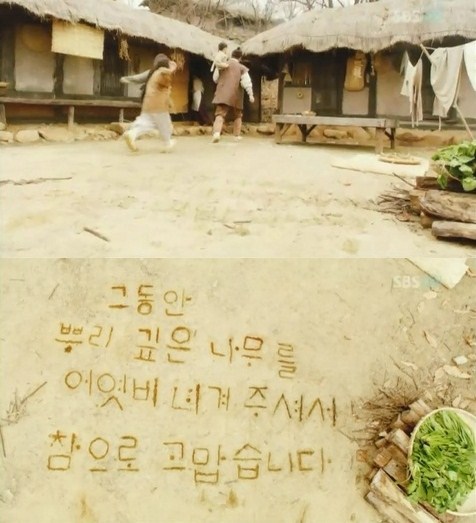 SBS
SBS
그동안
뿌리 깊은 나무를
어엿비 녀겨 주셔서
참으로 고맙습니다